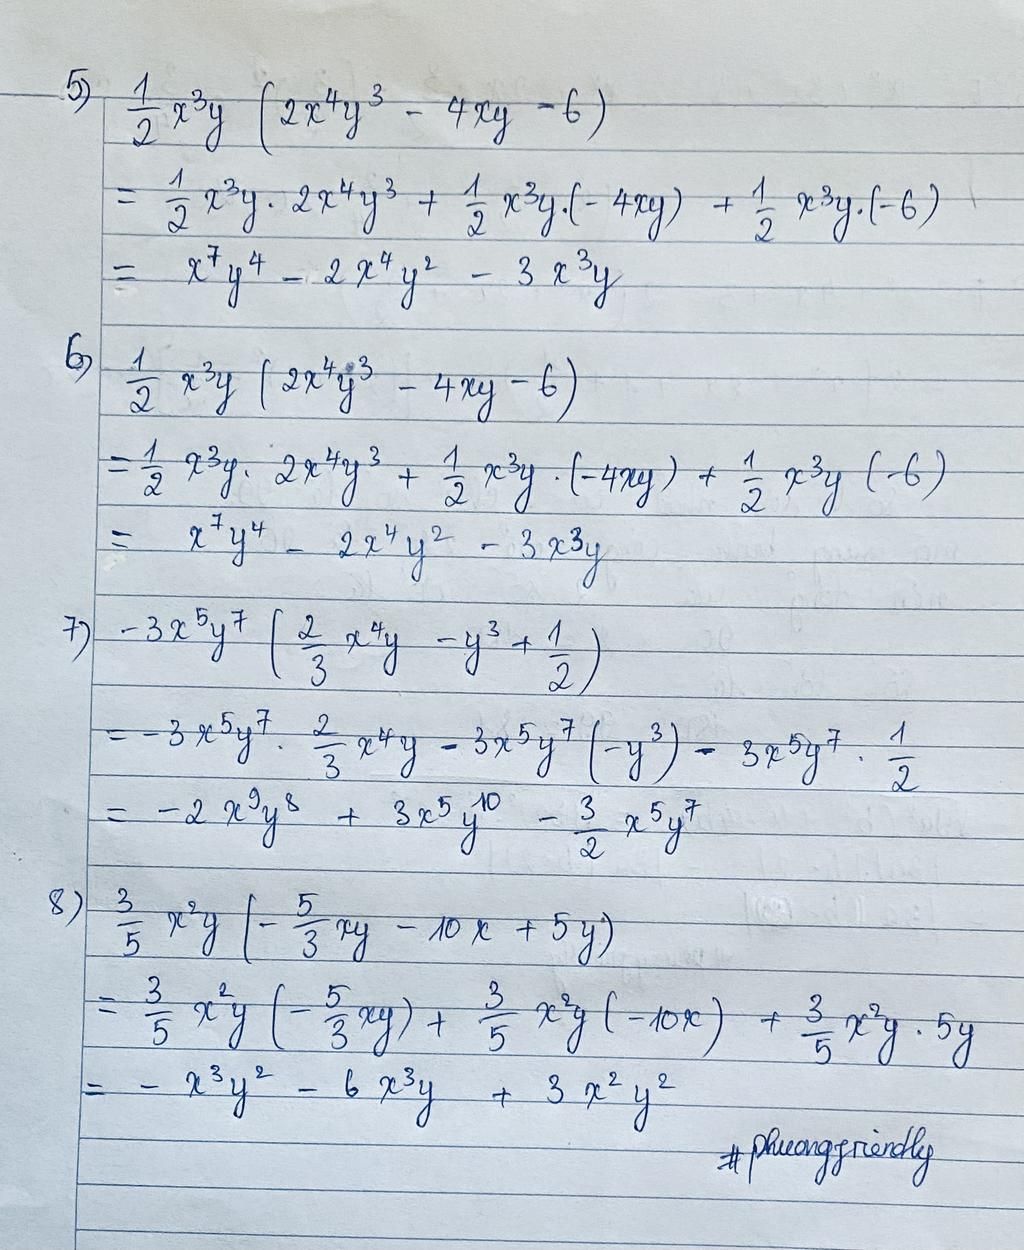 5) 1/2 x³y (2x⁴y³ - 4xy - 6)
= 1/2 x³y. 2x⁴y³ + 1/2 x³y.(-4xy) + 1/2 x³y.(-6)
= x⁷y⁴ - 2x⁴y² - 3x³y
6) 1/2 x³y (2x⁴y³ - 4xy - 6)
= 1/2 x³y. 2x⁴y³ + 1/2 x³y .(-4xy) + 1/2 x³y (-6)
= x⁷y⁴ - 2x⁴y² - 3x³y
7) -3x⁵y⁷ (2/3 x⁴y - y³ + 1/2)
= -3x⁵y⁷. 2/3 x⁴y - 3x⁵y⁷ (-y³) - 3x⁵y⁷ . 1/2
= -2x⁹y⁸ + 3x⁵y¹⁰ - 3/2 x⁵y⁷
8) 3/5 x²y (-5/3 xy - 10x + 5y)
= 3/5 x²y (-5/3 xy) + 3/5 x²y (-10x) + 3/5 x²y . 5y
= - x³y² - 6x³y + 3x²y²
#phuongfriendly